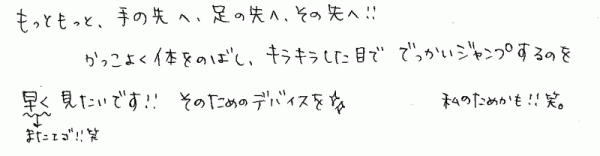 もっともっと、手の先へ、足の先へ、その先へ!!
かっこよく体をのばし、キラキラした目で でっかいジャンプするのを
早く 見たいです!! そのためのデバイスを☆☆ 私のためかも!!笑。
またエゴ!!笑